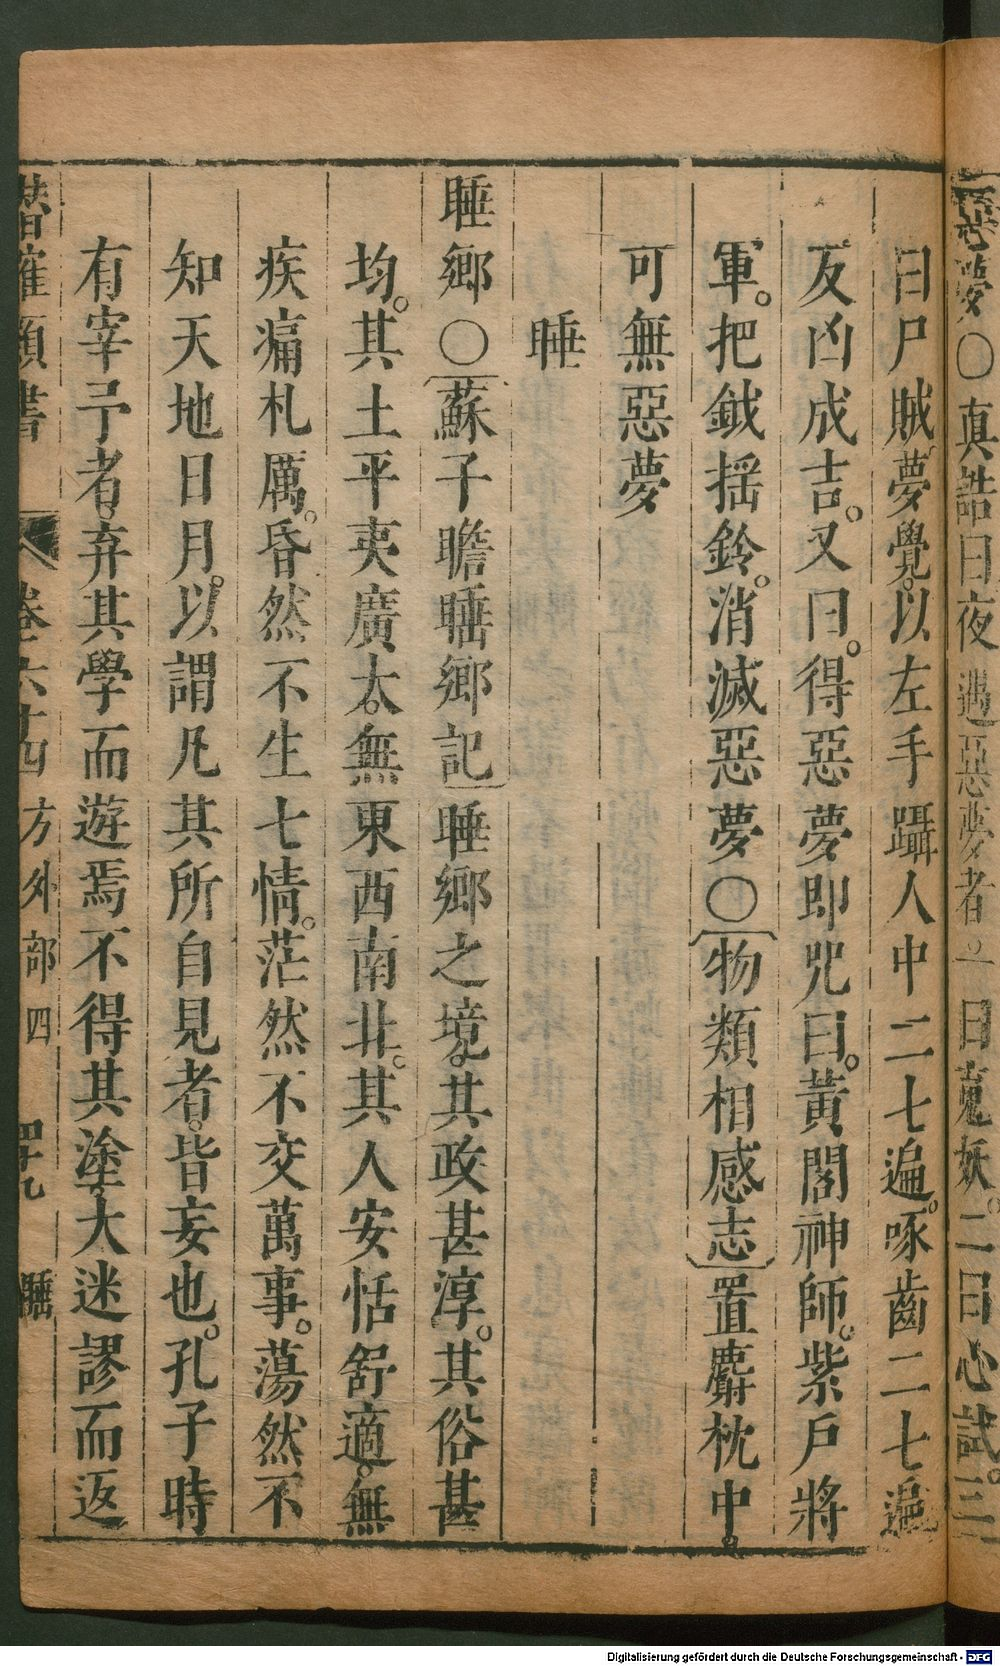 惡夢〇真誥曰夜遇惡夢者一曰魂妖。二曰心試。三
曰尸賊夢覺。以左手躡人中二七遍。啄齒二七遍
反凶成吉。又曰。得惡夢即咒曰。黃閣神師。紫戶將
軍。把鉞揺鈴。消滅惡夢〇物類相感志置麝枕中。
可無惡夢
睡
睡鄉〇蘇子瞻睡鄉記睡鄉之境。其政甚淳。其俗甚
均。其土平夷廣大。無東西南北。其人安恬舒適。無
疾痛札厲。昏然不生七情。茫然不交萬事。蕩然不
知天地日月。以謂凡其所自見者。皆妄也。孔子時
有宰予者。弃其學而遊焉不得其塗。大迷謬而返
潛確類書 卷六十四 方外部四 四十九 睡
Digitalisierung gefördert durch die Deutsche Forschungsgemeinschaft - DFG